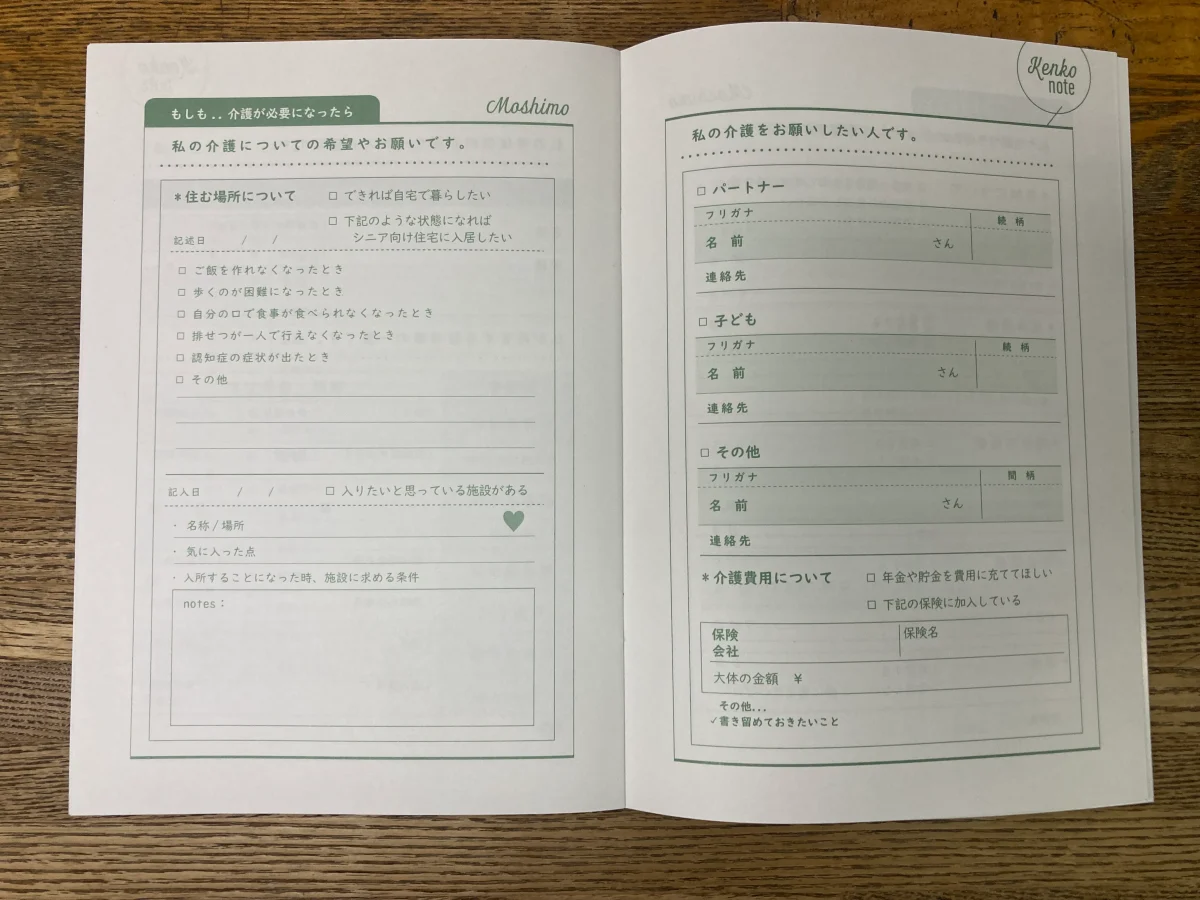 もしも..介護が必要になったら
Moshimo
私の介護についての希望やお願いです。
*住む場所について
□ できれば自宅で暮らしたい
□ 下記のような状態になれば
シニア向け住宅に入居したい
記述日 / /
□ ご飯を作れなくなったとき
□ 歩くのが困難になったとき
□ 自分の口で食事が食べられなくなったとき
□ 排せつが一人で行えなくなったとき
□ 認知症の症状が出たとき
□ その他
記入日 / / □ 入りたいと思っている施設がある
・ 名称/場所
・ 気に入った点
・ 入所することになった時、施設に求める条件
notes:
Kenko
note
私の介護をお願いしたい人です。
□ パートナー
フリガナ 続 柄
名 前 さん
連絡先
□ 子ども
フリガナ 続 柄
名 前 さん
連絡先
□ その他
フリガナ 間 柄
名 前 さん
連絡先
*介護費用について
□ 年金や貯金を費用に充ててほしい
□ 下記の保険に加入している
保険
会社
保険名
大体の金額 ¥
その他...
✓書き留めておきたいこと